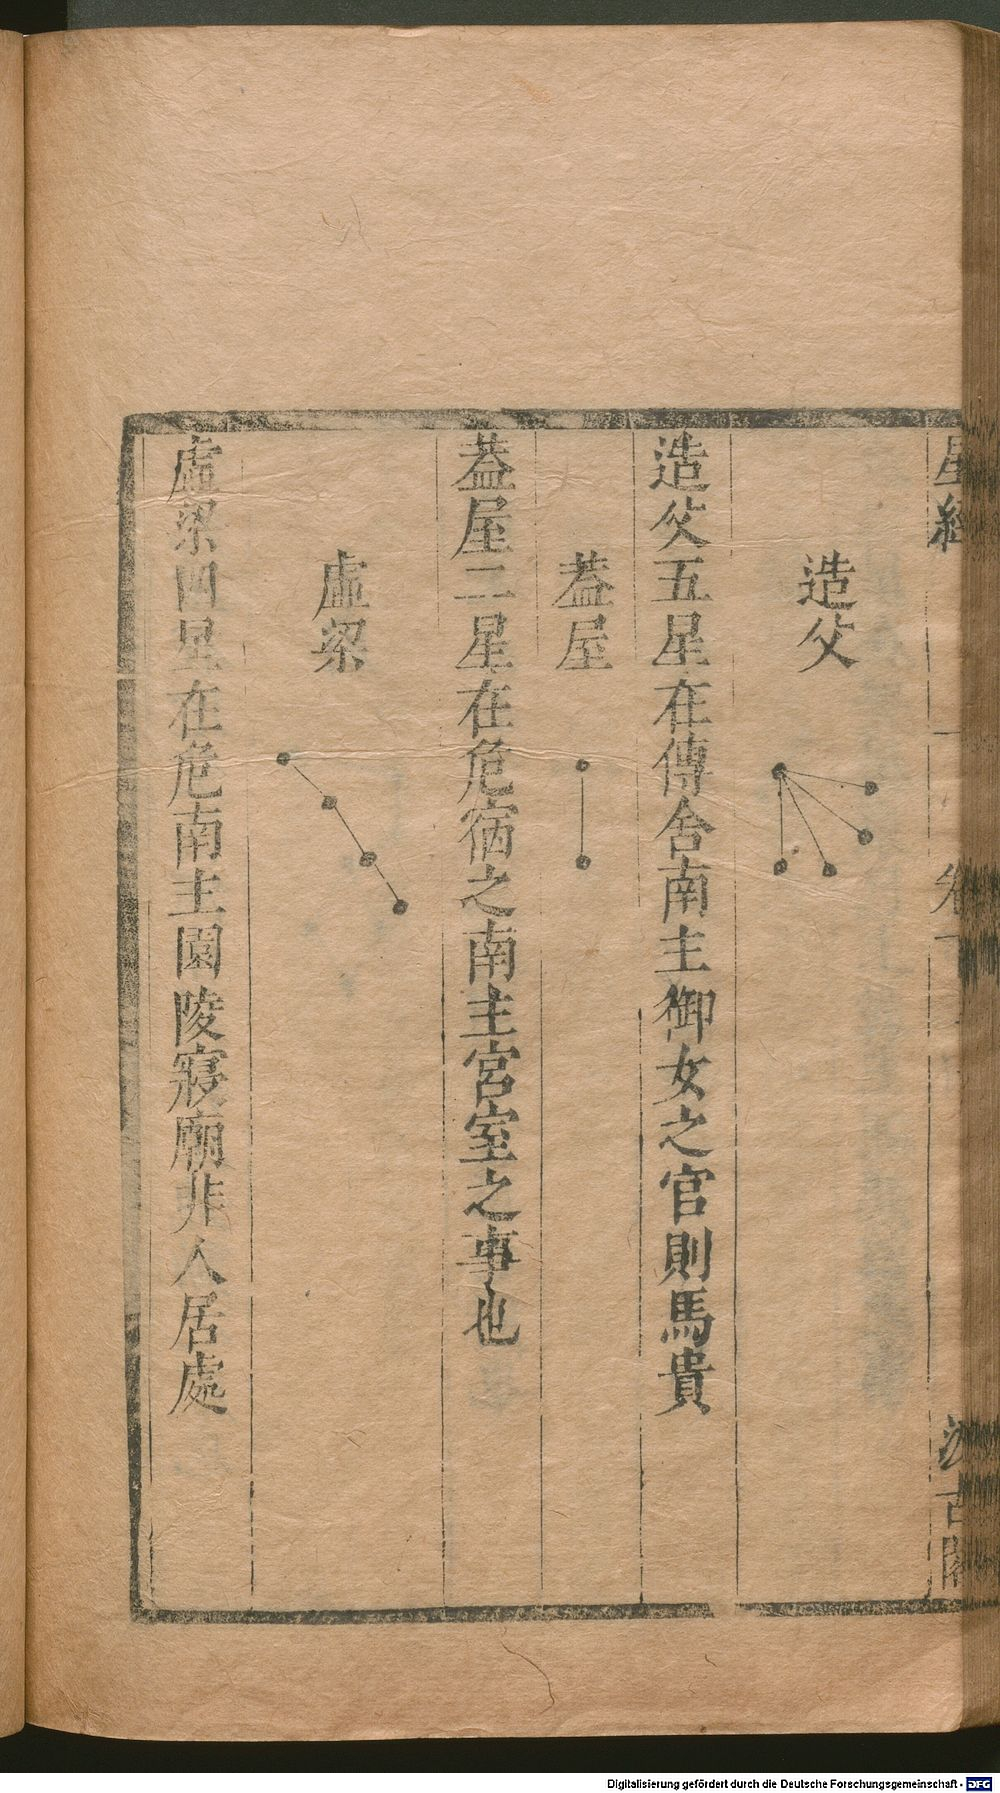 星經
卷下
汲古閣
造父
造父五星在傳舍南主御女之官則馬貴
葢屋
葢屋二星在危宿之南主宮室之事也
虛梁
虛梁四星在危南主園陵寢廟非人居處
Digitalisierung gefördert durch die Deutsche Forschungsgemeinschaft - DFG